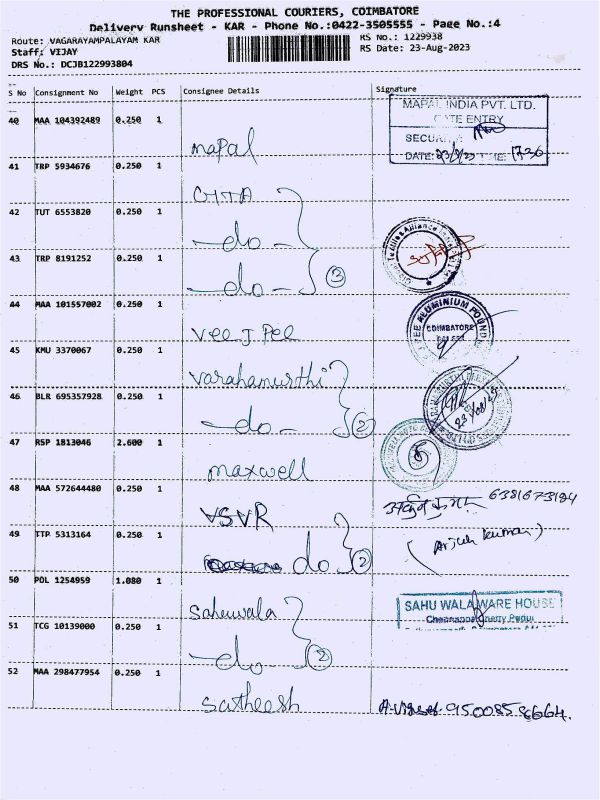 THE PROFESSIONAL COURIERS, COIMBATORE
Delivery Runsheet - KAR - Phone No.:0422-3505555 - Page No.:4
Route: VAGARAYAMPALAYAM KAR
RS No.: 1229938
Staff: VIJAY
RS Date: 23-Aug-2023
DRS No.: DCJB122993804
S No Consignment No Weight PCS Consignee Details Signature
40 MAA 104392489 0.250 1 mapal
MAPAL INDIA PVT. LTD.
GATE ENTRY
SECU
DATE: 23/8/23 TIME: 1730
41 TRP 5934676 0.250 1 GTTA
42 TUT 6553820 0.250 1 -do-
43 TRP 8191252 0.250 1 -do- 3
44 MAA 101557002 0.250 1 Vee J Pee
ALUMINIUM FOUND
COIMBATORE
45 KMU 3370067 0.250 1 Varahamurthi
46 BLR 695357928 0.250 1 -do- 2
23/08/23
47 RSP 1813046 2.600 1 maxwell
48 MAA 572644480 0.250 1 VSVR
6381673184
49 TTP 5313164 0.250 1 do 2
(Arjun kumar)
50 POL 1254959 1.080 1 Sahuwala
SAHU WALA WARE HOUSE
51 TCG 10139000 0.250 1 -do- 2
52 MAA 298477954 0.250 1 Satheesh